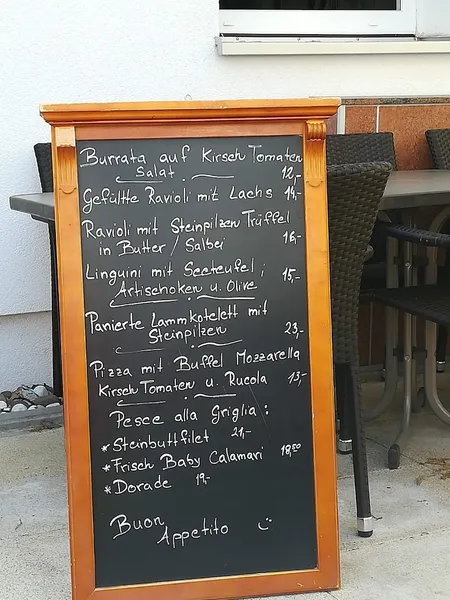 Burrata auf Kirsch Tomaten
Salat 12,-
Gefüllte Ravioli mit Lachs 14,-
Ravioli mit Steinpilzen Trüffel
in Butter / Salbei 16,-
Linguini mit Seeteufel;
Artischoken u. Olive 15,-
Panierte Lammkotelett mit
Steinpilzen 23,-
Pizza mit Buffel Mozzarella
Kirsch Tomaten u. Rucola 13,-
Pesce alla Griglia:
*Steinbuttfilet 21,-
*Frisch Baby Calamari 18,50
*Dorade 19,-
Buon
Appetito